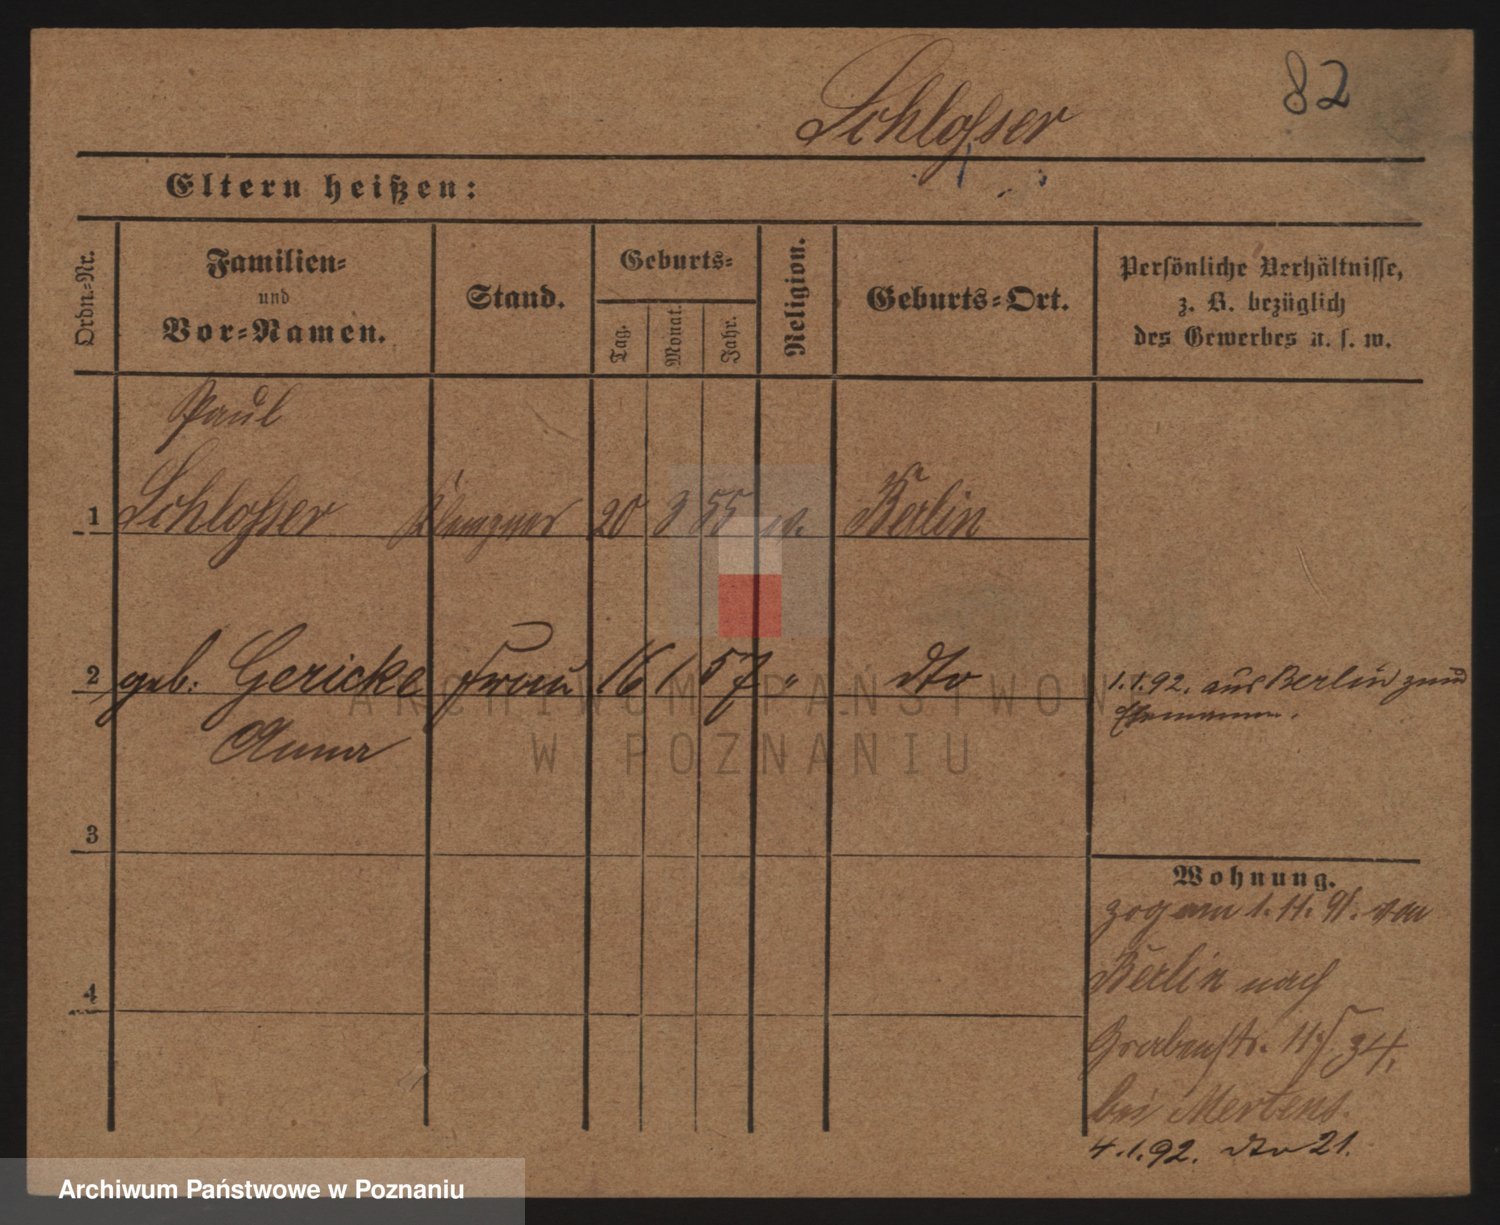 82
Schlosser
Eltern heißen:
Ordn.-Nr.
Familien-
und
Vor-Namen.
Stand.
Geburts-
Tag.
Monat.
Jahr.
Religion.
Geburts-Ort.
Persönliche Verhältnisse,
z. B. bezüglich
des Gewerbes u. s. w.
Paul
1 Schlosser Klempner 20 3 55 ev. Berlin
2 geb: Gericke Frau 16 1 57 " dto
Anna
1.1.92. aus Berlin zum
Ehemann.
3
Wohnung.
zog am 1. 11. 91. von
Berlin nach
4
Grabenstr. 34.
bei Mertens.
4.1.92. dto 21.
ARCHIWUM PAŃSTWOWE
W POZNANIU
Archiwum Państwowe w Poznaniu